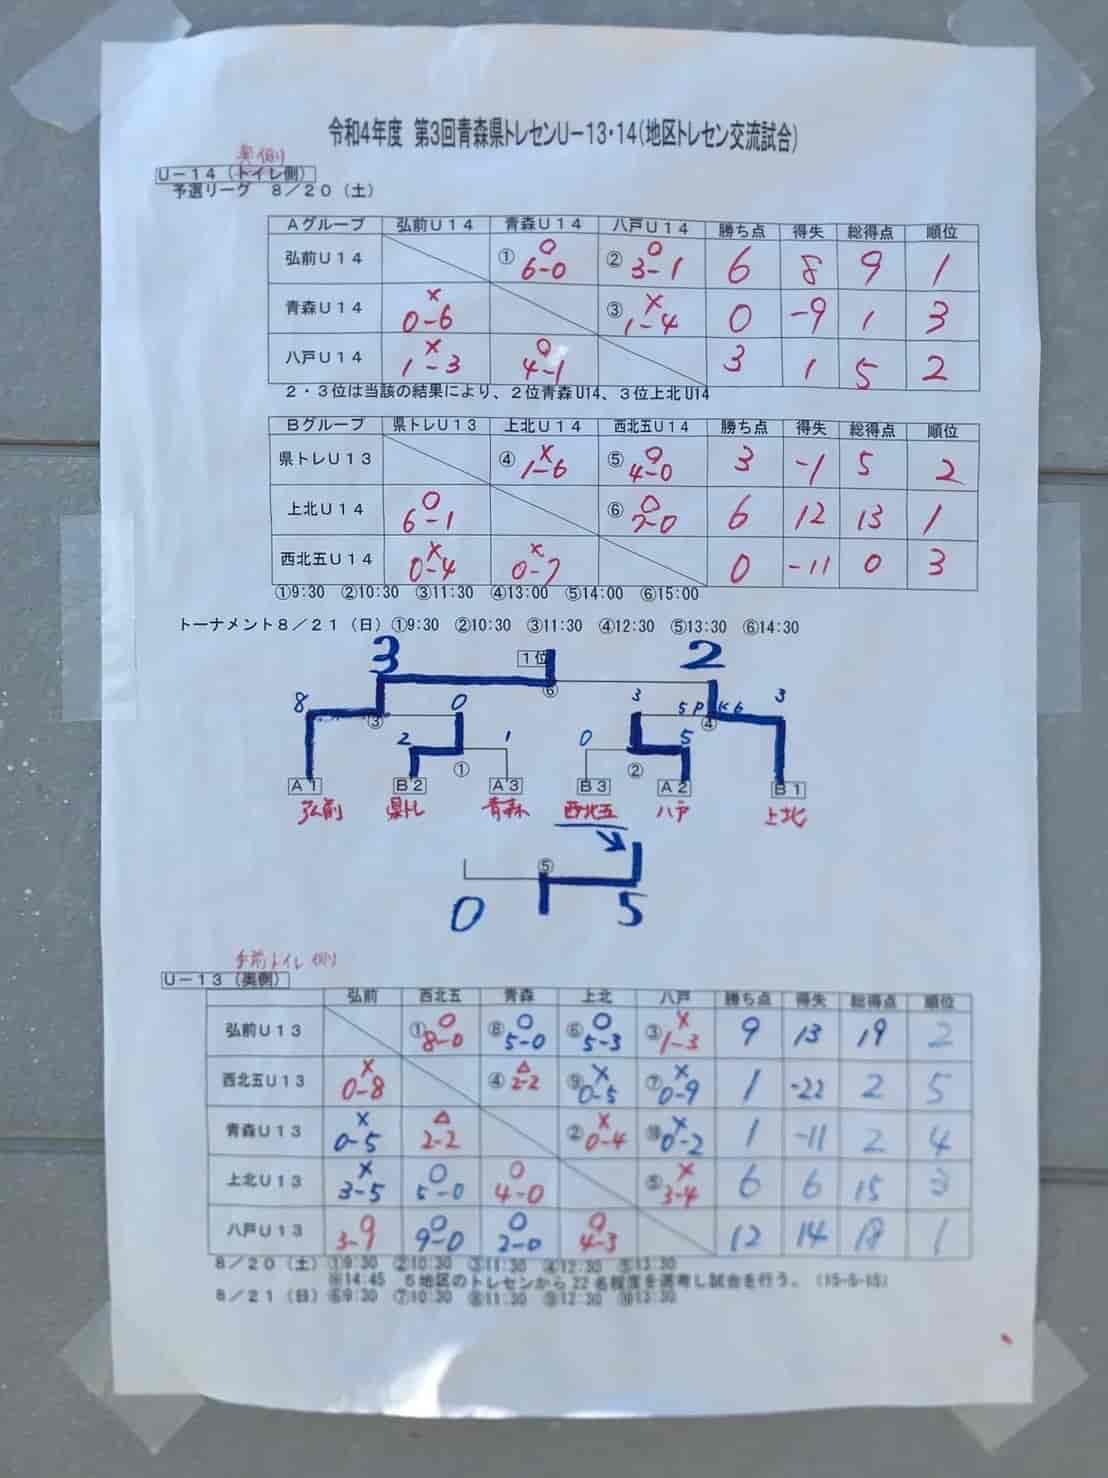 令和4年度 第3回青森県トレセンU-13・14(地区トレセン交流試合)
奥側
U-14(トイレ側)
予選リーグ 8/20(土)
Aグループ 弘前U14 青森U14 八戸U14 勝ち点 得失 総得点 順位
弘前U14 ① ○ 6-0 ② ○ 3-1 6 8 9 1
青森U14 × 0-6 ③ × 1-4 0 -9 1 3
八戸U14 × 1-3 ○ 4-1 3 1 5 2
2・3位は当該の結果により、2位青森U14、3位上北U14
Bグループ 県トレU13 上北U14 西北五U14 勝ち点 得失 総得点 順位
県トレU13 ④ × 1-6 ⑤ ○ 4-0 3 -1 5 2
上北U14 ○ 6-1 ⑥ ○ 7-0 6 12 13 1
西北五U14 × 0-4 × 0-7 0 -11 0 3
①9:30 ②10:30 ③11:30 ④13:00 ⑤14:00 ⑥15:00
トーナメント8/21(日) ①9:30 ②10:30 ③11:30 ④12:30 ⑤13:30 ⑥14:30
3 1位 2
⑥
8 ③ 0 3 5 PK 6 ④ 3
2 ① 1 0 ② 5
A1 B2 A3 B3 A2 B1
弘前 県トレ 青森 西北五 八戸 上北
⑤
0 5
手前トイレ側
U-13(奥側)
弘前 西北五 青森 上北 八戸 勝ち点 得失 総得点 順位
弘前U13 ① ○ 8-0 ⑧ ○ 5-0 ⑥ ○ 5-3 ③ × 1-3 9 13 19 2
西北五U13 × 0-8 ④ △ 2-2 ⑨ × 0-5 ⑦ × 0-9 1 -22 2 5
青森U13 × 0-5 △ 2-2 ② × 0-4 ⑩ × 0-2 1 -11 2 4
上北U13 × 3-5 ○ 5-0 ○ 4-0 ⑤ × 3-4 6 6 15 3
八戸U13 ○ 3-1 ○ 9-0 ○ 2-0 ○ 4-3 12 14 18 1
8/20(土) ①9:30 ②10:30 ③11:30 ④12:30 ⑤13:30
14:45 6地区のトレセンから22名程度を選考し試合を行う。(15-5-15)
8/21(日) ⑥9:30 ⑦10:30 ⑧11:30 ⑨12:30 ⑩13:30